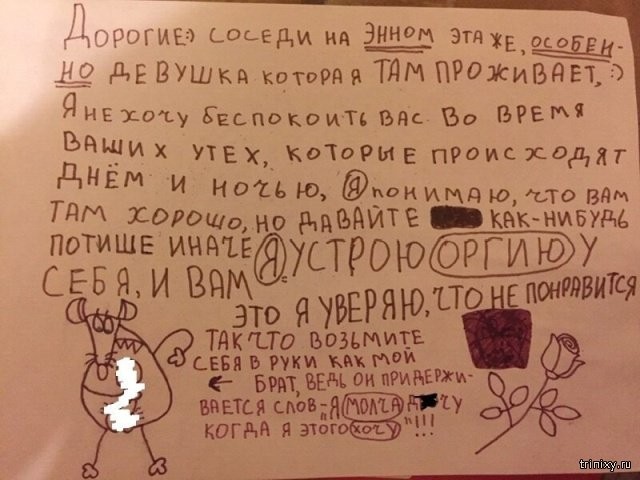 Дорогие:) соседи на энном этаже, особен-
но девушка которая там проживает, :)
Я не хочу беспокоить вас во время
ваших утех, которые происходят
днём и ночью, я понимаю, что вам
там хорошо, но давайте как-нибудь
потише иначе я устрою оргию у
себя, и вам
это я уверяю, что не понравится
так что возьмите
себя в руки как мой
← брат, ведь он придержи-
вается слов-"я молча д чу
когда я этого хочу"!!!
trinixy.ru